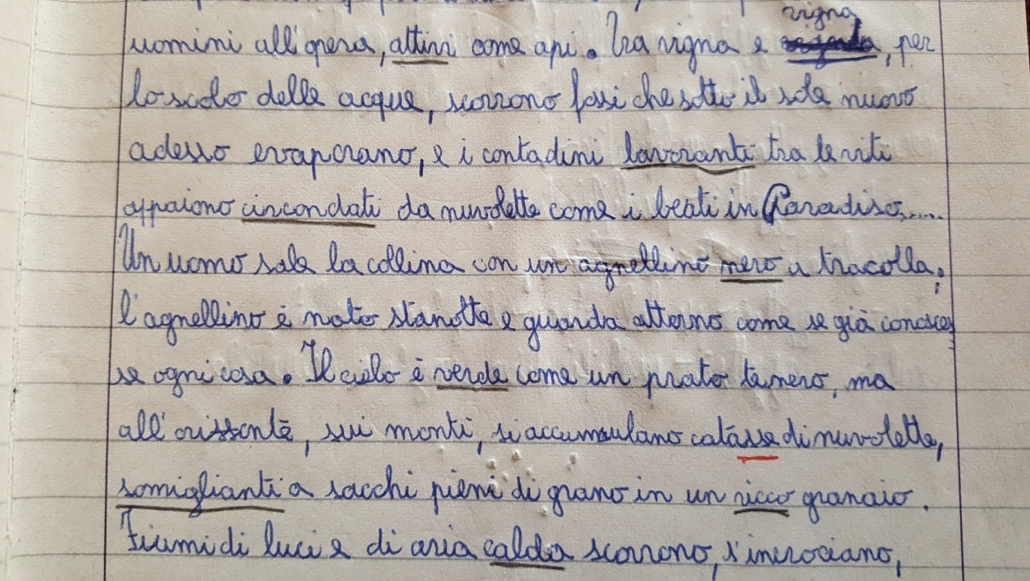 uomini all'opera, attivi come api. Tra vigna e vigna, per
lo scolo delle acque, scorrono fossi che sotto il sole nuovo
adesso evaporano, e i contadini lavoranti tra le viti
appaiono circondati da nuvolette come i beati in Paradiso......
Un uomo sale la collina con un agnellino nero a tracolla;
l'agnellino è nato stanotte e guarda attorno come se già conosces
se ogni cosa. Il cielo è verde come un prato tenero, ma
all'orissonte, sui monti, si accumulano catasse di nuvolette,
somiglianti a sacchi pieni di grano in un ricco granaio.
Fiumi di luci e di aria calda scorrono, s'incrociano,